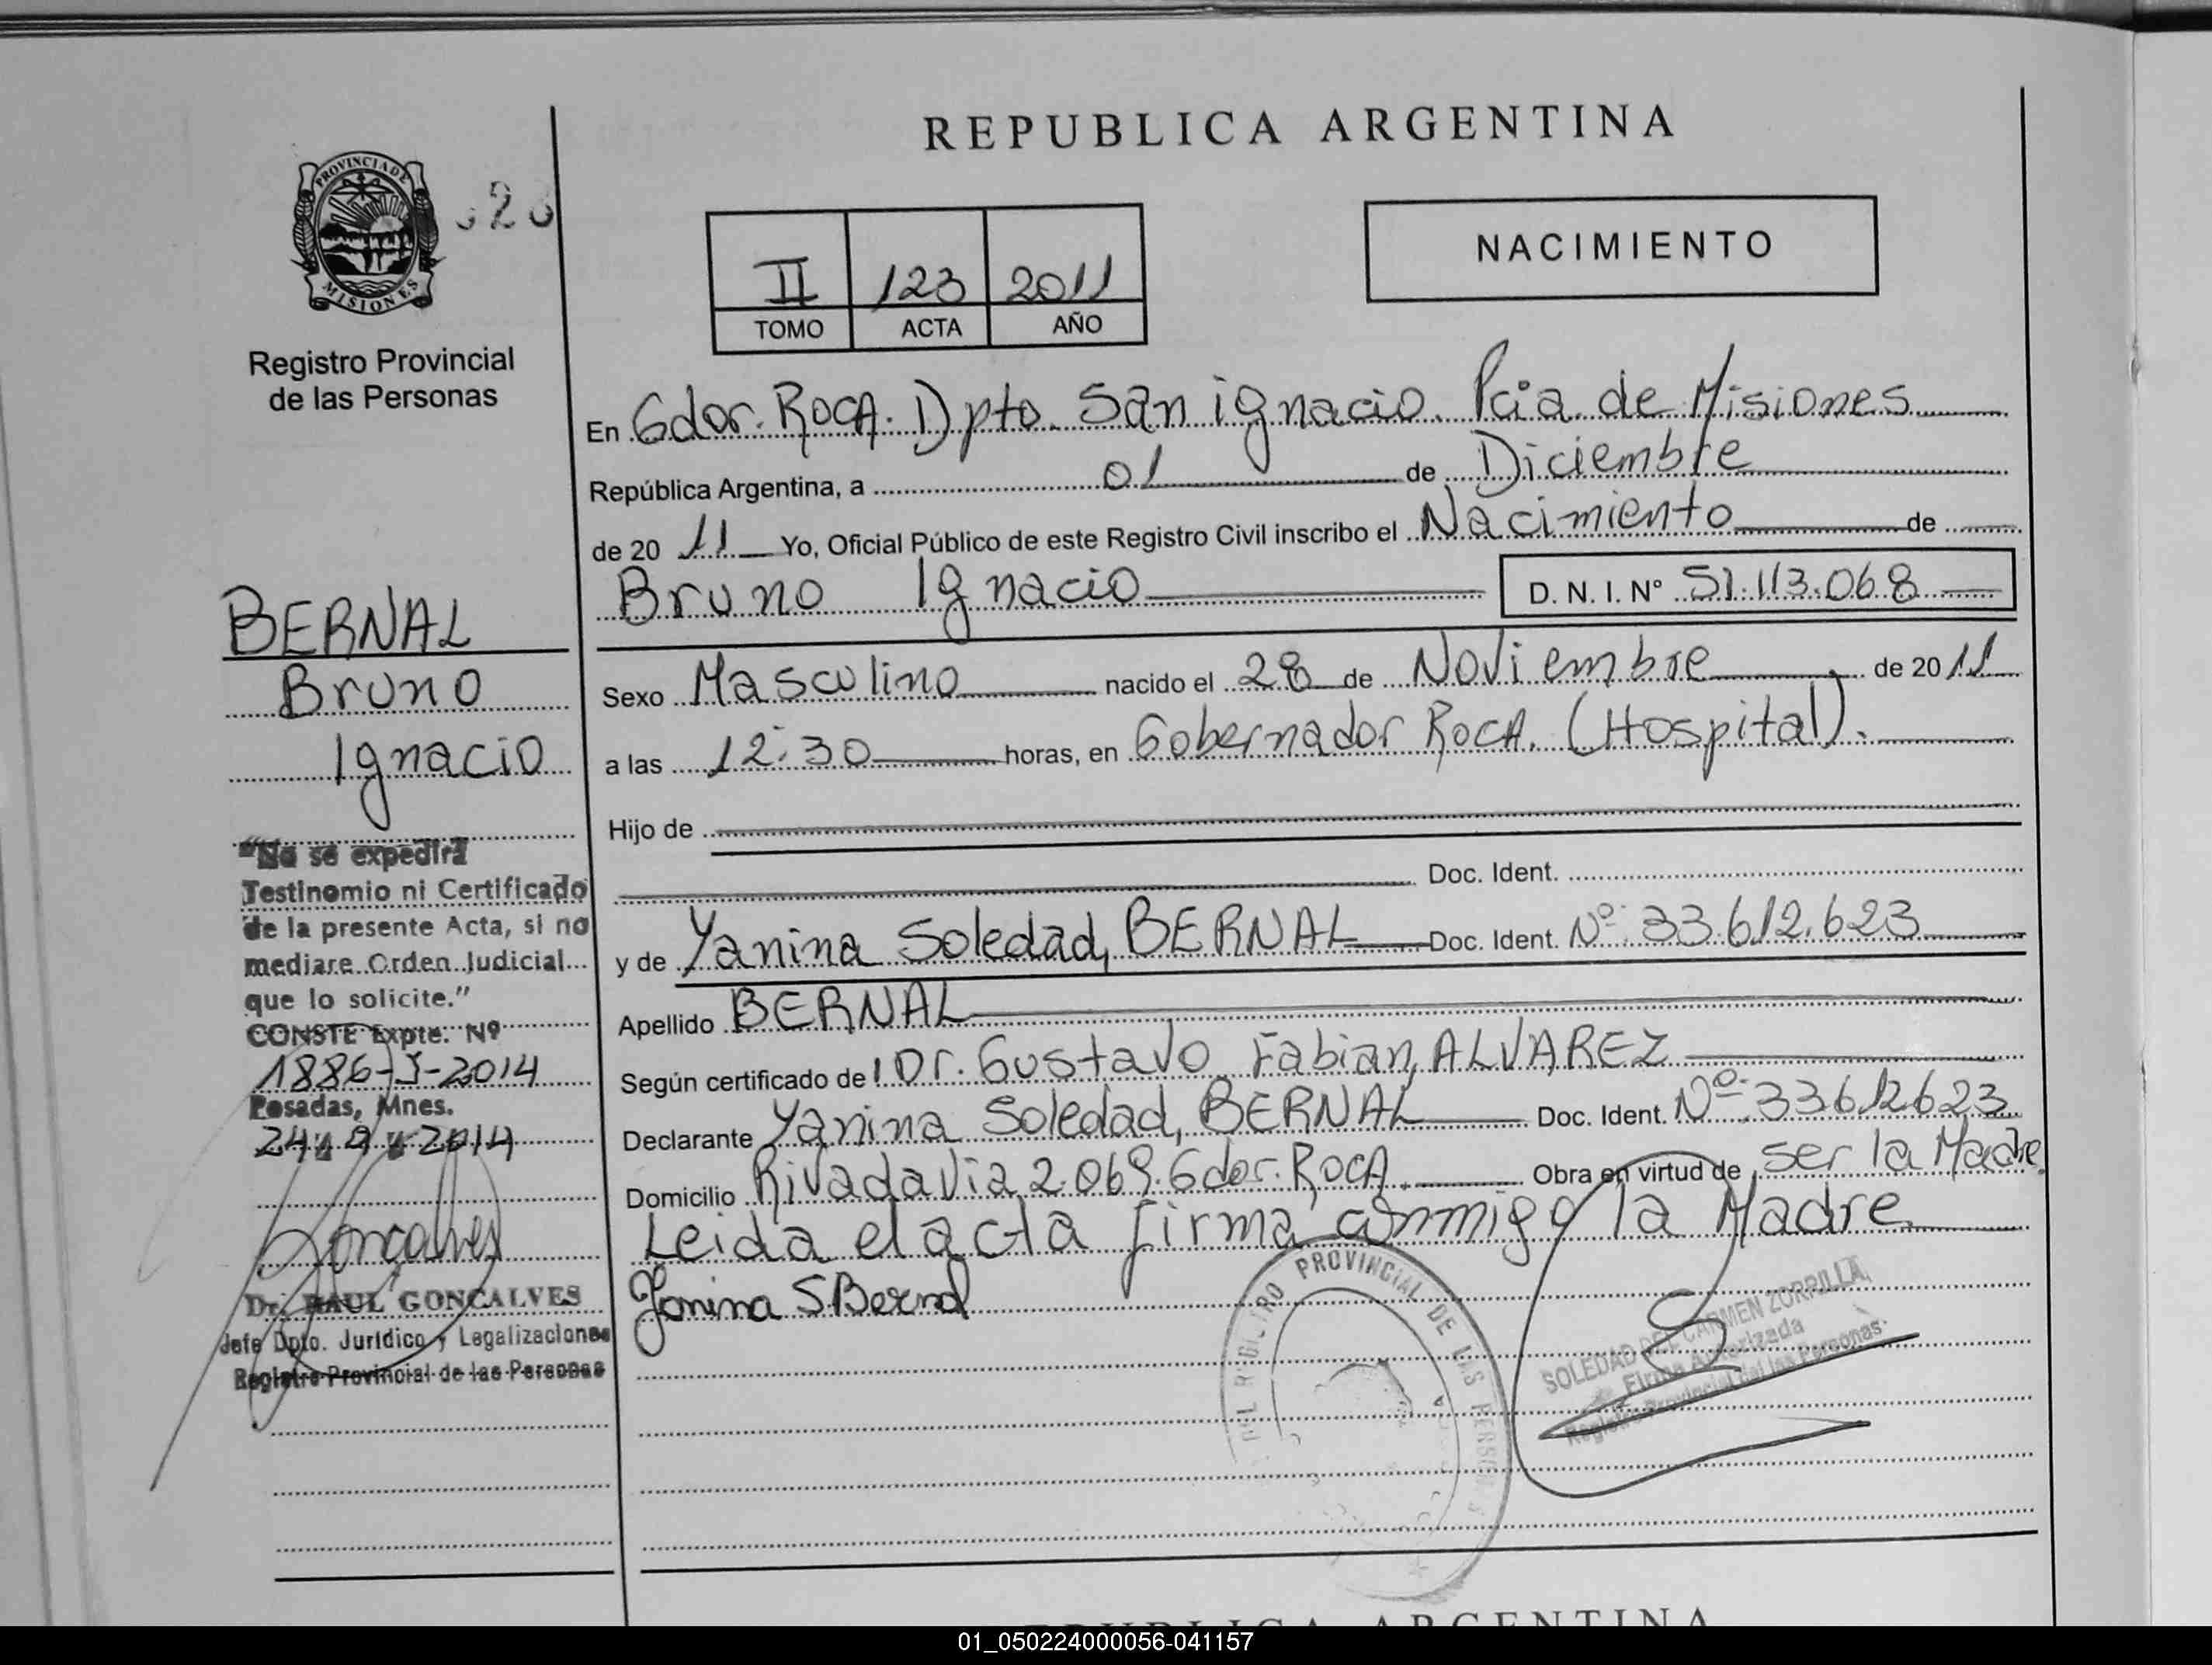 REPUBLICA ARGENTINA
PROVINCIA DE
MISIONES
Registro Provincial
de las Personas
NACIMIENTO
II 123 2011
TOMO ACTA AÑO
En Gdor. Roca. Dpto. San ignacio. Pcia. de Misiones
República Argentina, a 01 de Diciembre
de 20 11 Yo, Oficial Público de este Registro Civil inscribo el Nacimiento de
Bruno Ignacio D. N. I. Nº 51.113.068
Sexo Masculino nacido el 28 de Noviembre de 20 11
a las 12:30 horas, en Gobernador Roca. (Hospital).
Hijo de
Doc. Ident.
y de Yanina Soledad, BERNAL Doc. Ident. Nº: 33.612.623
Apellido BERNAL
Según certificado de l Dr. Gustavo Fabian, ALVAREZ
Declarante Yanina Soledad, BERNAL Doc. Ident. Nº: 33612623
Domicilio Rivadavia 2.069. Gdor. Roca. Obra en virtud de ser la Madre.
Leida el acta firma conmigo la Madre
Yanina S Bernal
DEL REGISTRO PROVINCIAL DE LAS PERSONAS
SOLEDAD DEL CARMEN ZORRILLA
Firma Autorizada
Registro Provincial de las Personas
BERNAL
Bruno
Ignacio
"No se expedirá
Testinomio ni Certificado
de la presente Acta, si no
mediare Orden Judicial
que lo solicite."
CONSTE Expte. Nº
1886-J-2014
Posadas, Mnes.
24 9 2014
Goncalves
Dr. RAUL GONCALVES
Jefe Dpto. Jurídico y Legalizaciones
Registro Provincial de las Personas
REPUBLICA ARGENTINA
01_050224000056-041157